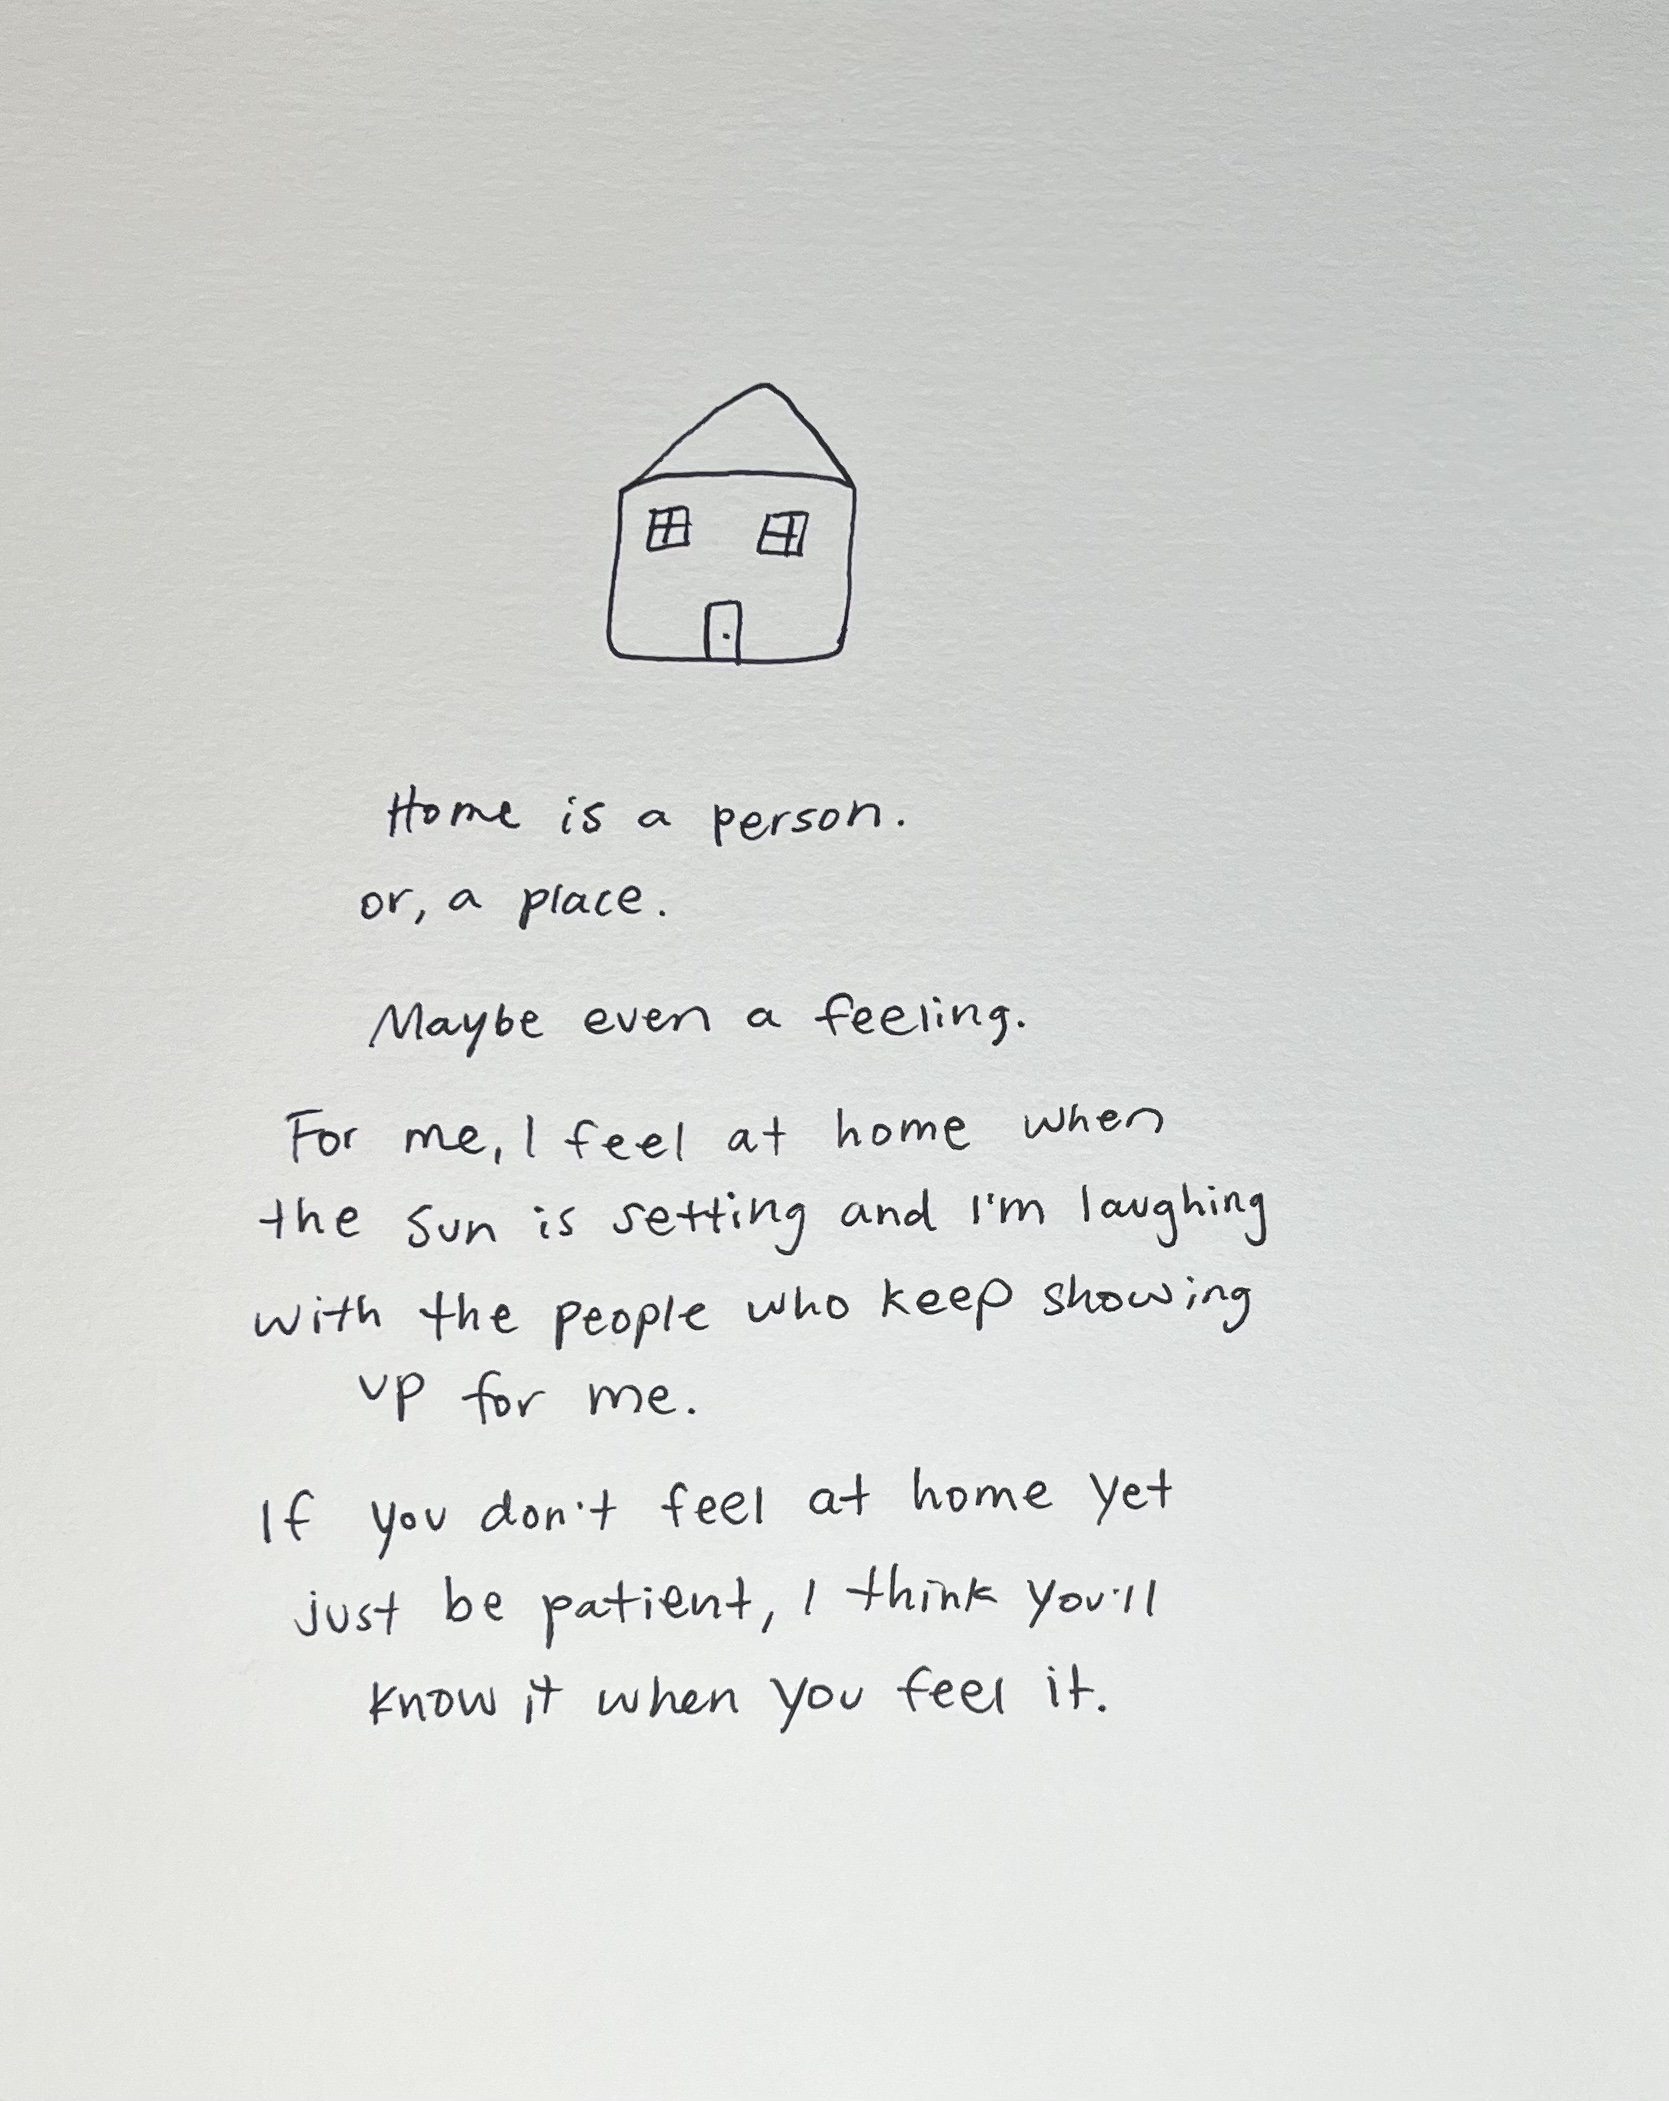 Home is a person.
or, a place.
Maybe even a feeling.
For me, I feel at home when
the sun is setting and I'm laughing
with the people who keep showing
up for me.
If you don't feel at home yet
just be patient, I think you'll
know it when you feel it.